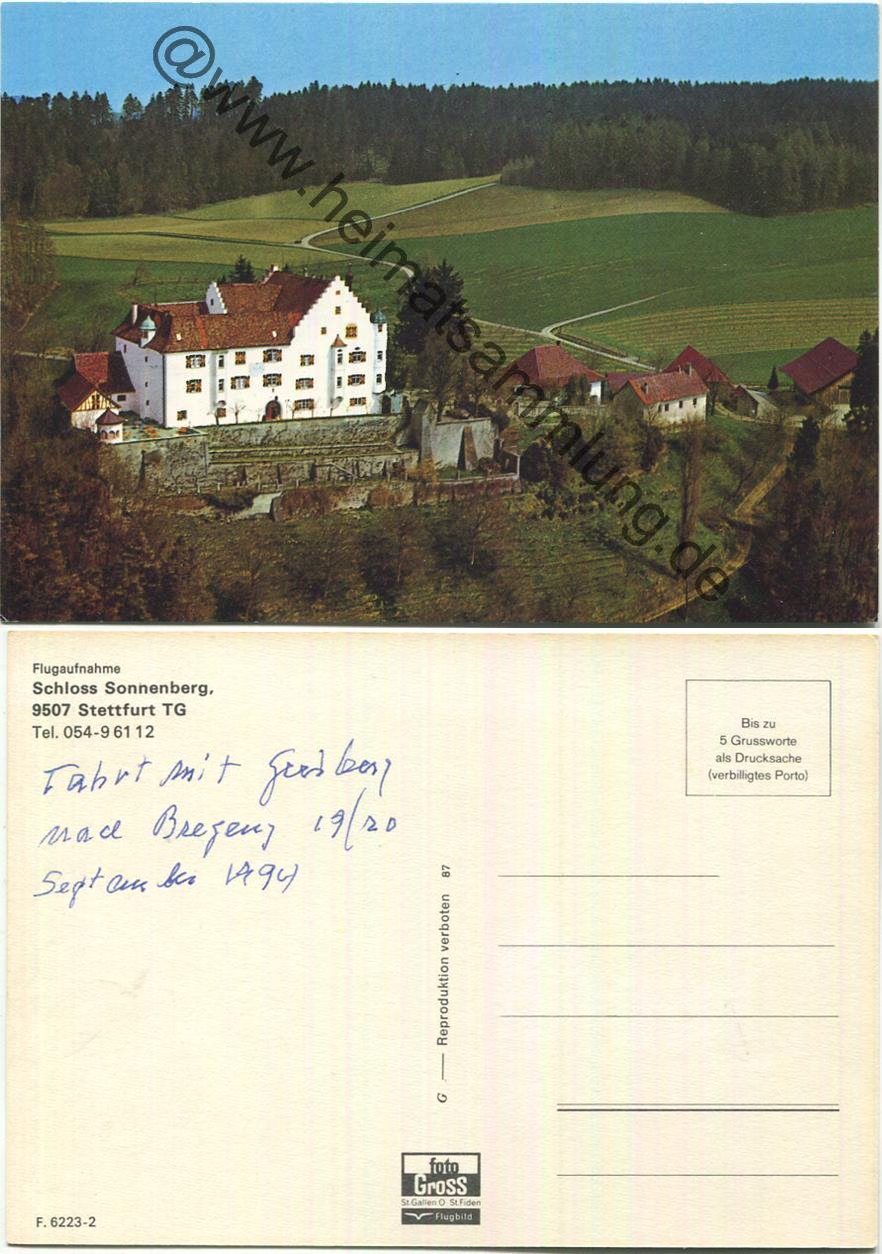 @www.heimatsammlung.de
Flugaufnahme
Schloss Sonnenberg,
9507 Stettfurt TG
Tel. 054-9 61 12
Bis zu
5 Grussworte
als Drucksache
(verbilligtes Porto)
Fahrt mit
nach Bregenz 19/20
September
G — Reproduktion verboten 87
foto
GROSS
St.Gallen O St.Fiden
Flugbild
F. 6223-2